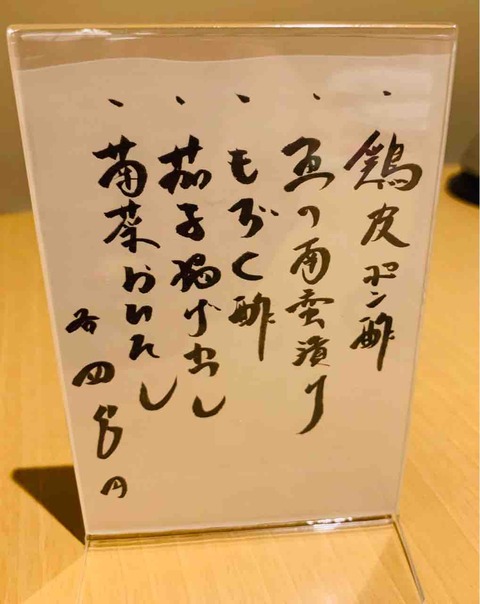 、鶏皮ポン酢
、魚の南蛮漬け
、もずく酢
、茄子揚げ出し
、菊菜おひたし
各四百円